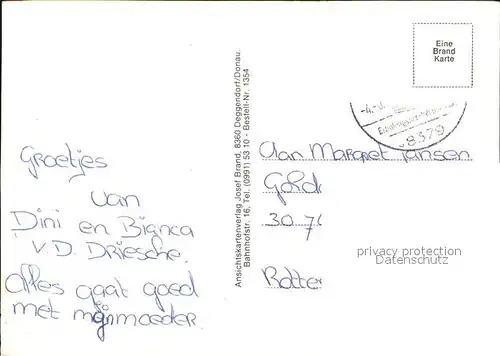 Eine
Brand
Karte
8379
Ansichtskartenverlag Josef Brand, 8360 Deggendorf/Donau.
Bahnhofstr. 16, Tel. (0991) 53 10 - Bestell-Nr. 1354
Groetjes
van
Dini en Bianca
v.D. DRiesche.
Alles gaat goed
met mijn moeder
Aan Margret Jansen
Gord
30.7
Rotter
privacy protection
Datenschutz